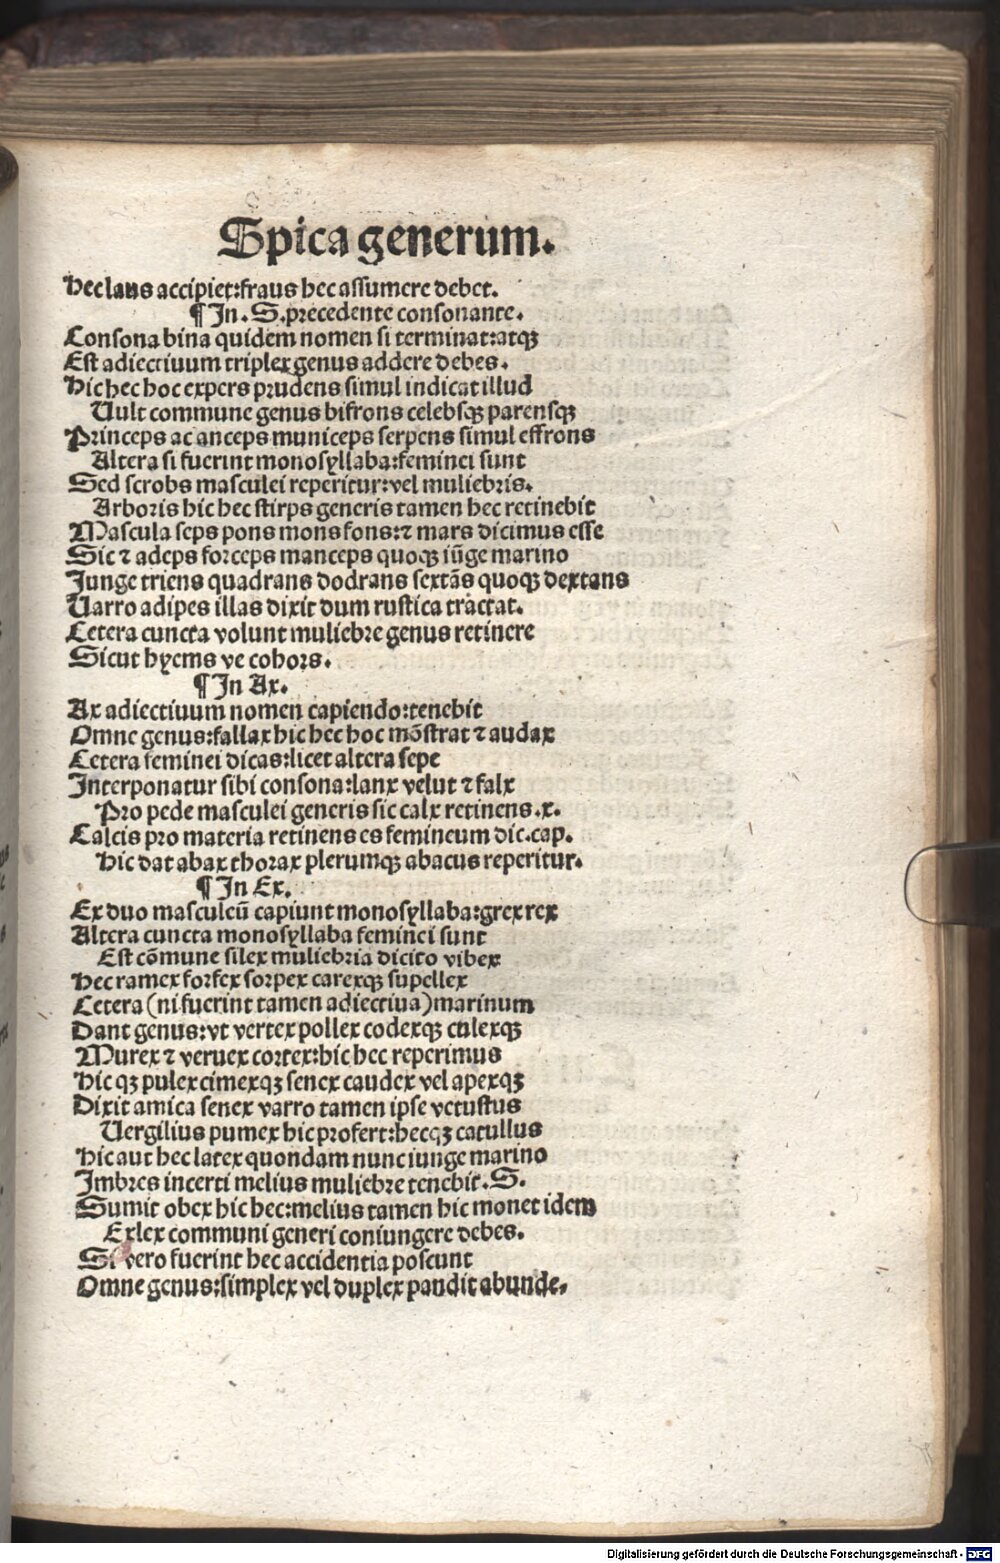 Spica generum.
Hec laus accipiet:fraus hec assumere debet.
¶ In .S. precedente consonante.
Consona bina quidem nomen si terminat:atqꝫ
Est adiectiuum triplex genus addere debes.
Hic hec hoc expers prudens simul indicat illud
Uult commune genus bifrons celebsqꝫ parensqꝫ
Princeps ac anceps municeps serpens simul effrons
Altera si fuerint monosyllaba:feminei sunt
Sed scrobs masculei reperitur:vel muliebris.
Arboris hic hec stirps generis tamen hec retinebit
Mascula seps pons mons fons:⁊ mars dicimus esse
Sic ⁊ adeps forceps manceps quoqꝫ iũge marino
Junge triens quadrans dodrans sextãs quoqꝫ dextans
Uarro adipes illas dixit dum rustica tractat.
Cetera cuncta volunt muliebre genus retinere
Sicut hyems ve cohors.
¶ In Ax.
Ax adiectiuum nomen capiendo:tenebit
Omne genus:fallax hic hec hoc mõstrat ⁊ audax
Cetera feminei dicas:licet altera sepe
Interponatur sibi consona:lanx velut ⁊ falx
Pro pede masculei generis sic calx retinens .x.
Calcis pro materia retinens es femineum dic.cap.
Hic dat abax thorax plerumqꝫ abacus reperitur.
¶ In Ex.
Ex duo masculeũ capiunt monosyllaba:grex rex
Altera cuncta monosyllaba feminei sunt
Est cõmune silex muliebria dicito vibex
Hec ramex forfex sorpex carexqꝫ supellex
Cetera (ni fuerint tamen adiectiua) marinum
Dant genus:vt vertex pollex codexqꝫ culexqꝫ
Murex ⁊ veruex cortex:hic hec reperimus
Hic qꝫ pulex cimexqꝫ senex caudex vel apexqꝫ
Dixit amica senex varro tamen ipse vetustus
Uergilius pumex hic profert:hecqꝫ catullus
Hic aut hec latex quondam nunc iunge marino
Imbres incerti melius muliebre tenebit .S.
Sumit obex hic hec:melius tamen hic monet idem
Exlex communi generi coniungere debes.
Si vero fuerint hec accidentia poscunt
Omne genus:simplex vel duplex pandit abunde.
Digitalisierung gefördert durch die Deutsche Forschungsgemeinschaft - DFG